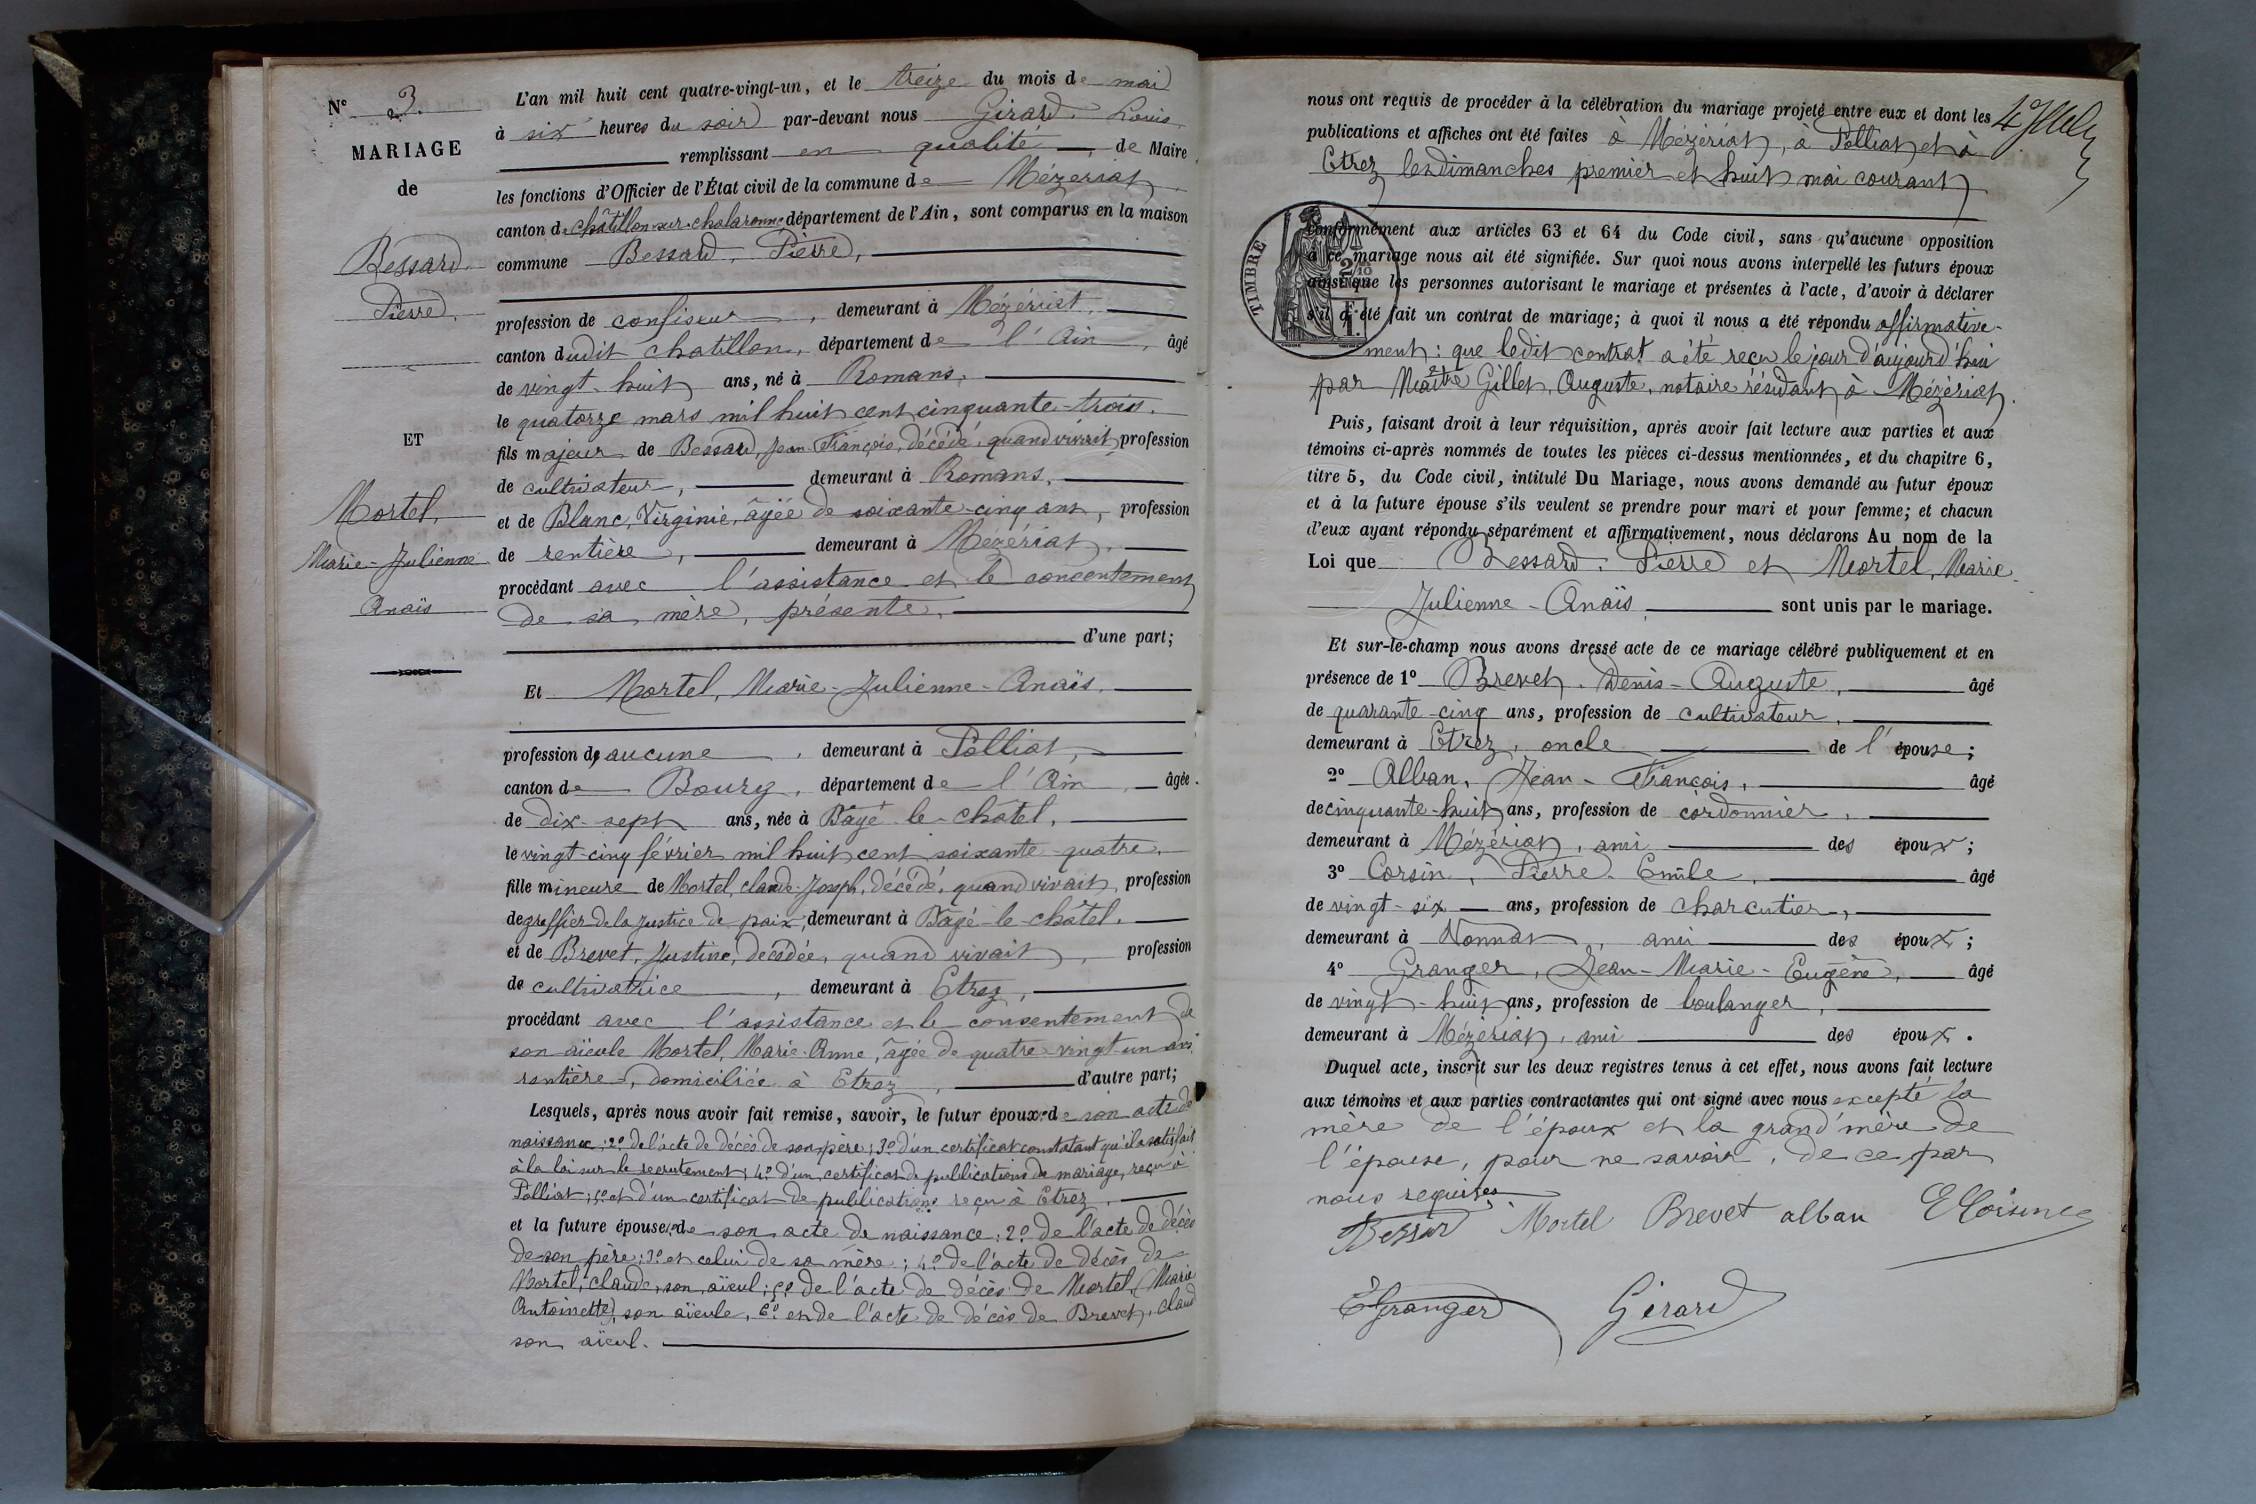 N° 3.
MARIAGE
de
Bessard
Pierre,
ET
Mortel,
Marie-Julienne
Anaïs
L'an mil huit cent quatre-vingt-un, et le treize du mois de mai
à six heures du soir par-devant nous Girard, Louis,
remplissant en qualité, de Maire
les fonctions d'Officier de l'État civil de la commune de Mézériat,
canton de Châtillon-sur-chalaronne département de l'Ain, sont comparus en la maison
commune Bessard, Pierre,
profession de confiseur, demeurant à Mézériat,
canton dudit chatillon, département de l'Ain, âgé
de vingt-huit ans, né à Romans,
le quatorze mars mil huit cent cinquante-trois.
fils majeur de Bessard, Jean-François, décédé, quand vivait, profession
de cultivateur, demeurant à Romans,
et de Blanc, Virginie, âgée de soixante-cinq ans, profession
de rentière, demeurant à Mézériat,
procédant avec l'assistance et le concentement
de sa mère, présente,
d'une part;
Et Mortel, Marie-Julienne-Anaïs,
profession de aucune, demeurant à Polliat,
canton de Bourg, département de l'Ain, âgée
de dix-sept ans, née à Bâgé-le-châtel,
le vingt-cinq février mil huit cent soixante-quatre,
fille mineure de Mortel, claude-Joseph, décédé, quand vivait, profession
de greffier de la Justice de paix, demeurant à Bâgé-le-châtel,
et de Brevet, Justine, décédée, quand vivait, profession
de cultivatrice, demeurant à Etrez,
procédant avec l'assistance et le consentement de
son aïeule Mortel, Marie-Anne, âgée de quatre-vingt-un ans,
rentière, domiciliée à Etrez, d'autre part;
Lesquels, après nous avoir fait remise, savoir, le futur époux: de son acte de
naissance; 2° de l'acte de décès de son père; 3° d'un certificat constatant qu'il a satisfait
à la loi sur le recrutement; 4° d'un certificat de publications de mariage, reçu à
Polliat; 5° et d'un certificat de publications reçu à Etrez,
et la future épouse: de son acte de naissance; 2° de l'acte de décès
de son père; 3° et celui de sa mère; 4° de l'acte de décès de
Mortel, claude, son aïeul; 5° de l'acte de décès de Mortel, (Marie
Antoinette), son aïeule, 6° et de l'acte de décès de Brevet, claud
son aïeul.
nous ont requis de procéder à la célébration du mariage projeté entre eux et dont les
publications et affiches ont été faites à Mézériat, à Polliat et à
Etrez les dimanches premier et huit mai courant
TIMBRE
2/10
conformément aux articles 63 et 64 du Code civil, sans qu'aucune opposition
à ce mariage nous ait été signifiée. Sur quoi nous avons interpellé les futurs époux
ainsi que les personnes autorisant le mariage et présentes à l'acte, d'avoir à déclarer
s'il a été fait un contrat de mariage; à quoi il nous a été répondu affirmative-
ment: que ledit contrat a été reçu le jour d'aujourd'hui
par Maître Gillet, Auguste, notaire résidant à Mézériat.
Puis, faisant droit à leur réquisition, après avoir fait lecture aux parties et aux
témoins ci-après nommés de toutes les pièces ci-dessus mentionnées, et du chapitre 6,
titre 5, du Code civil, intitulé Du Mariage, nous avons demandé au futur époux
et à la future épouse s'ils veulent se prendre pour mari et pour femme; et chacun
d'eux ayant répondu séparément et affirmativement, nous déclarons Au nom de la
Loi que Bessard, Pierre et Mortel, Marie
Julienne-Anaïs, sont unis par le mariage.
Et sur-le-champ nous avons dressé acte de ce mariage célébré publiquement et en
présence de 1° Brevet, Denis-Auguste, âgé
de quarante-cinq ans, profession de cultivateur,
demeurant à Etrez, oncle de l'épouse;
2° Alban, Jean-François, âgé
de cinquante-huit ans, profession de cordonnier,
demeurant à Mézériat, ami des époux;
3° Corsin, Pierre-Emile, âgé
de vingt-six ans, profession de charcutier,
demeurant à Vonnas, ami des époux;
4° Granger, Jean-Marie-Eugène, âgé
de vingt-huit ans, profession de boulanger,
demeurant à Mézériat, ami des époux.
Duquel acte, inscrit sur les deux registres tenus à cet effet, nous avons fait lecture
aux témoins et aux parties contractantes qui ont signé avec nous excepté la
mère de l'époux et la grand'mère de
l'épouse, pour ne savoir, de ce par
nous requises
Bessard Mortel Brevet alban
E Granger Girard